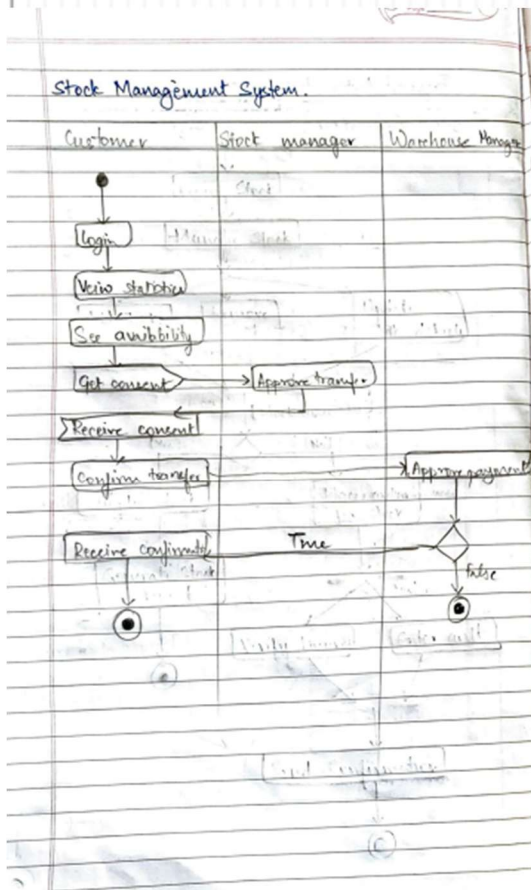 Stock Management System.
Customer Stock manager Warehouse Manager
Login
Veiw statistics
See availbility
Get consent Approve transfer
Receive consent
Confirm transfer Approve payment
Receive confirmate True
False